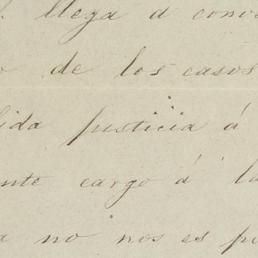 llega á conoc
de los casos
ida justicia á
nte cargo á la
a no nos es po